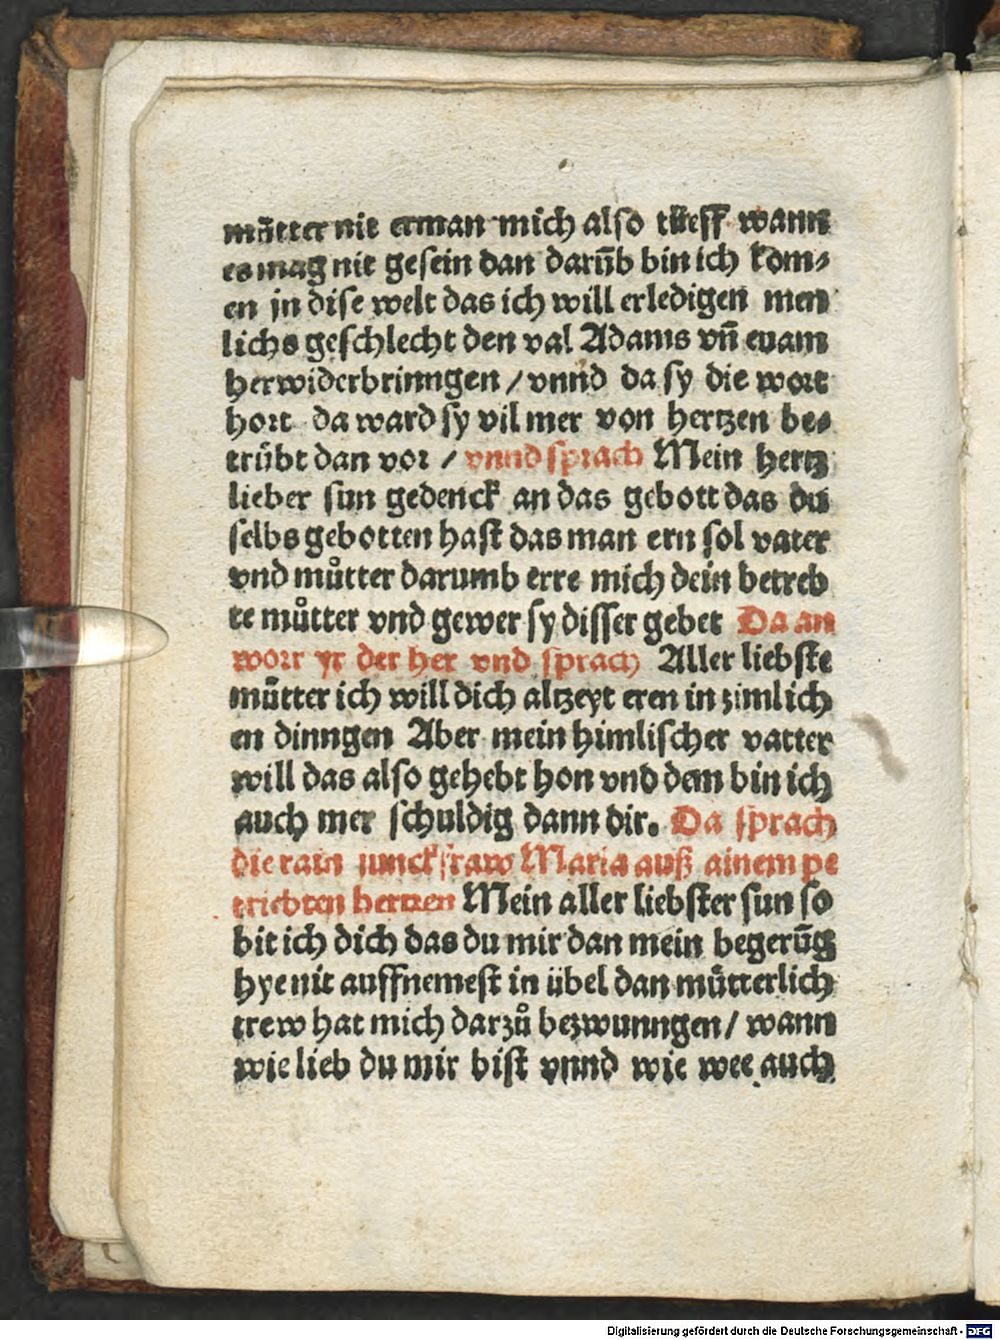 můtter nit erman mich also tüeff wann
es mag nit gesein dan darūb bin ich kom⸗
en jn dise welt das ich will erledigen men
lichs geschlecht den val Adams vn̄ euam
herwiderbrinngen / vnnd da sy die wort
hort da ward sy vil mer von hertzen be⸗
trübt dan vor / vnnd sprach Mein hertz
lieber sun gedenck an das gebott das du
selbs gebotten hast das man ern sol vater
vnd můtter darumb erre mich dein betreb
te můtter vnd gewer sy disser gebet Da an
wort yr der her vnd sprach Aller liebste
můtter ich will dich altzeyt eren in zimlich
en dinngen Aber mein himlischer vatter
will das also gehebt hon vnd dem bin ich
auch mer schuldig dann dir. Da sprach
die rain junckfraw Maria auß ainem pe
triebten hertzen Mein aller liebster sun so
bit ich dich das du mir dan mein begerūg
hye nit auffnemest in übel dan můtterlich
trew hat mich darzů bezwunngen / wann
wie lieb du mir bist vnnd wie wee auch
Digitalisierung gefördert durch die Deutsche Forschungsgemeinschaft - DFG